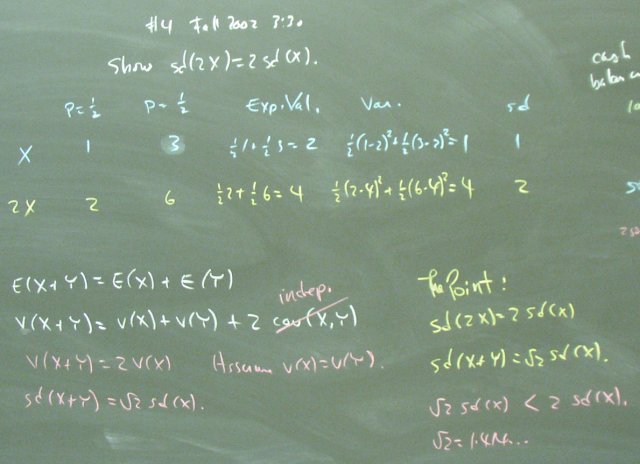 #4 Fall 2002 3:30
Show sd(2X)=2 sd(X).
P=½ P=½ Exp.Val. Var. sd
X 1 3 ½1+½3=2 ½(1-2)²+½(3-2)²=1 1
2X 2 6 ½2+½6=4 ½(2-4)²+½(6-4)²=4 2
cash
E(X+Y)=E(X)+E(Y)
indep.
V(X+Y)=V(X)+V(Y)+2 cov(X,Y)
V(X+Y)=2V(X) Assume V(X)=V(Y).
sd(X+Y)=√2 sd(X).
The Point:
sd(2X)=2sd(X)
sd(X+Y)=√2 sd(X).
√2 sd(X) < 2 sd(X).